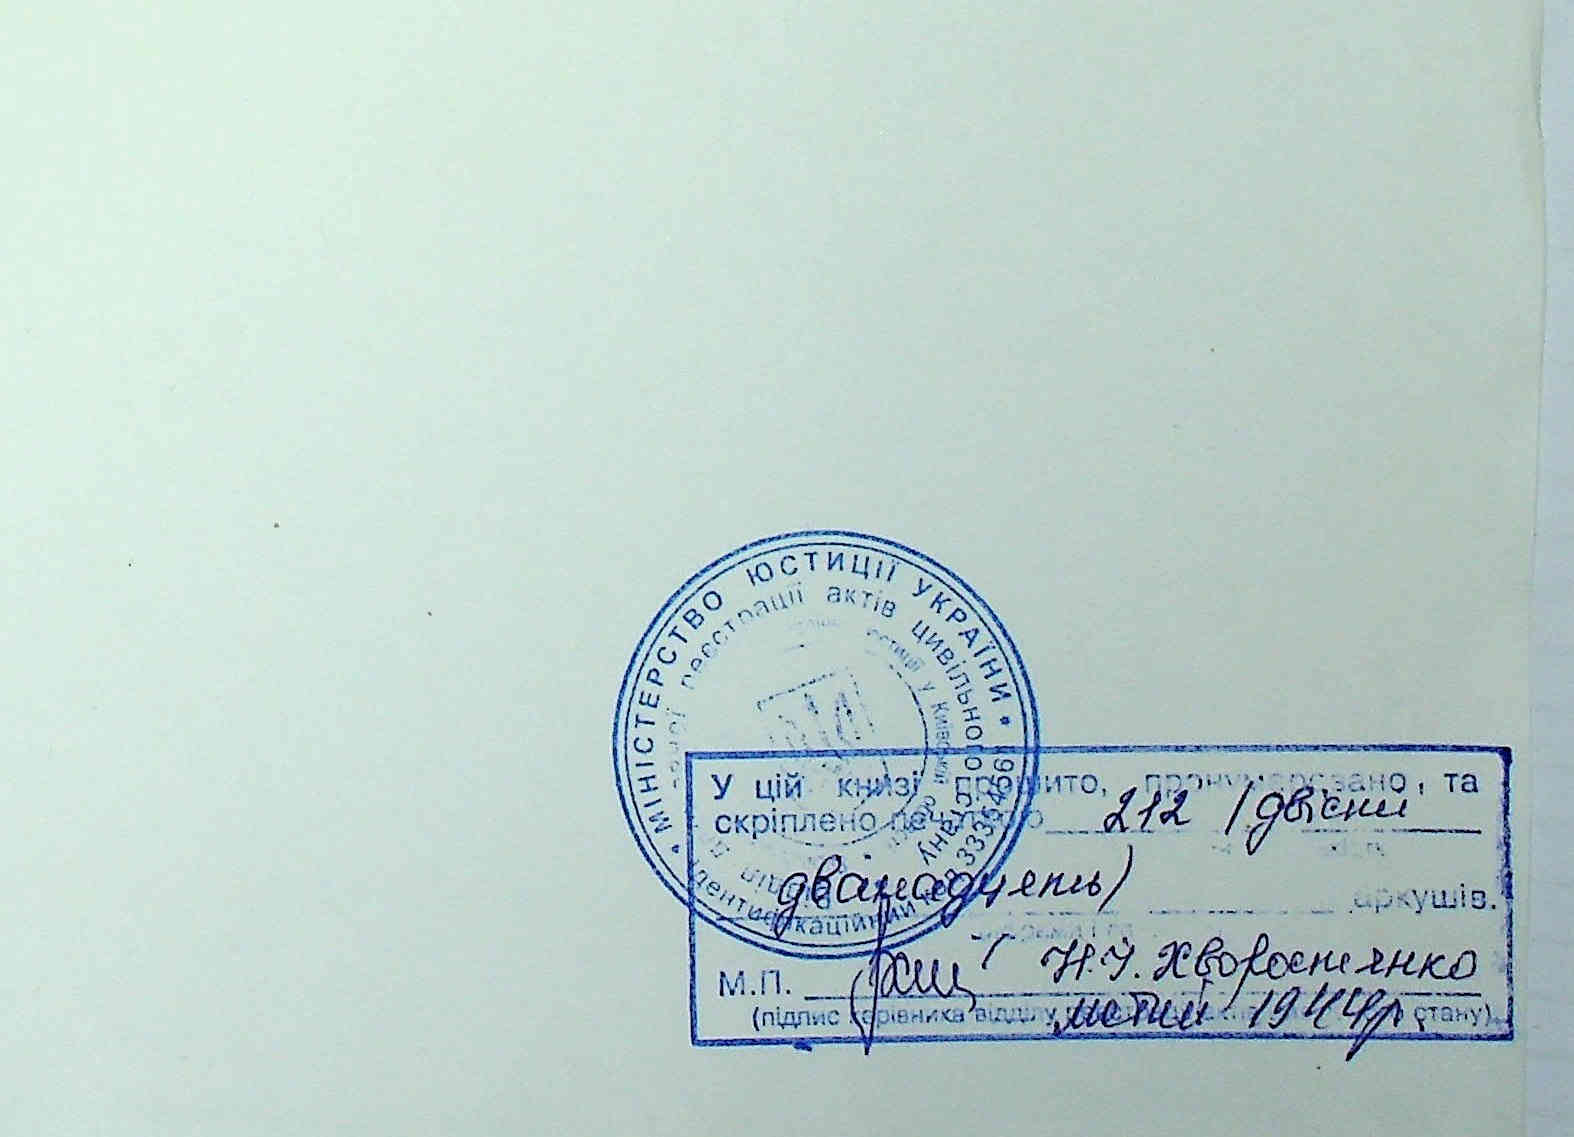 МІНІСТЕРСТВО ЮСТИЦІЇ УКРАЇНИ
реєстрації актів цивільного стану
юстиції у Київській
Ідентифікаційний код
У цій книзі прошито, пронумеровано, та
скріплено печаткою 212 /двісти
дванадцять)
аркушів.
М.П. Н.І. Хворостянко
(підпис керівника відділу стану)
лютий 1944р.